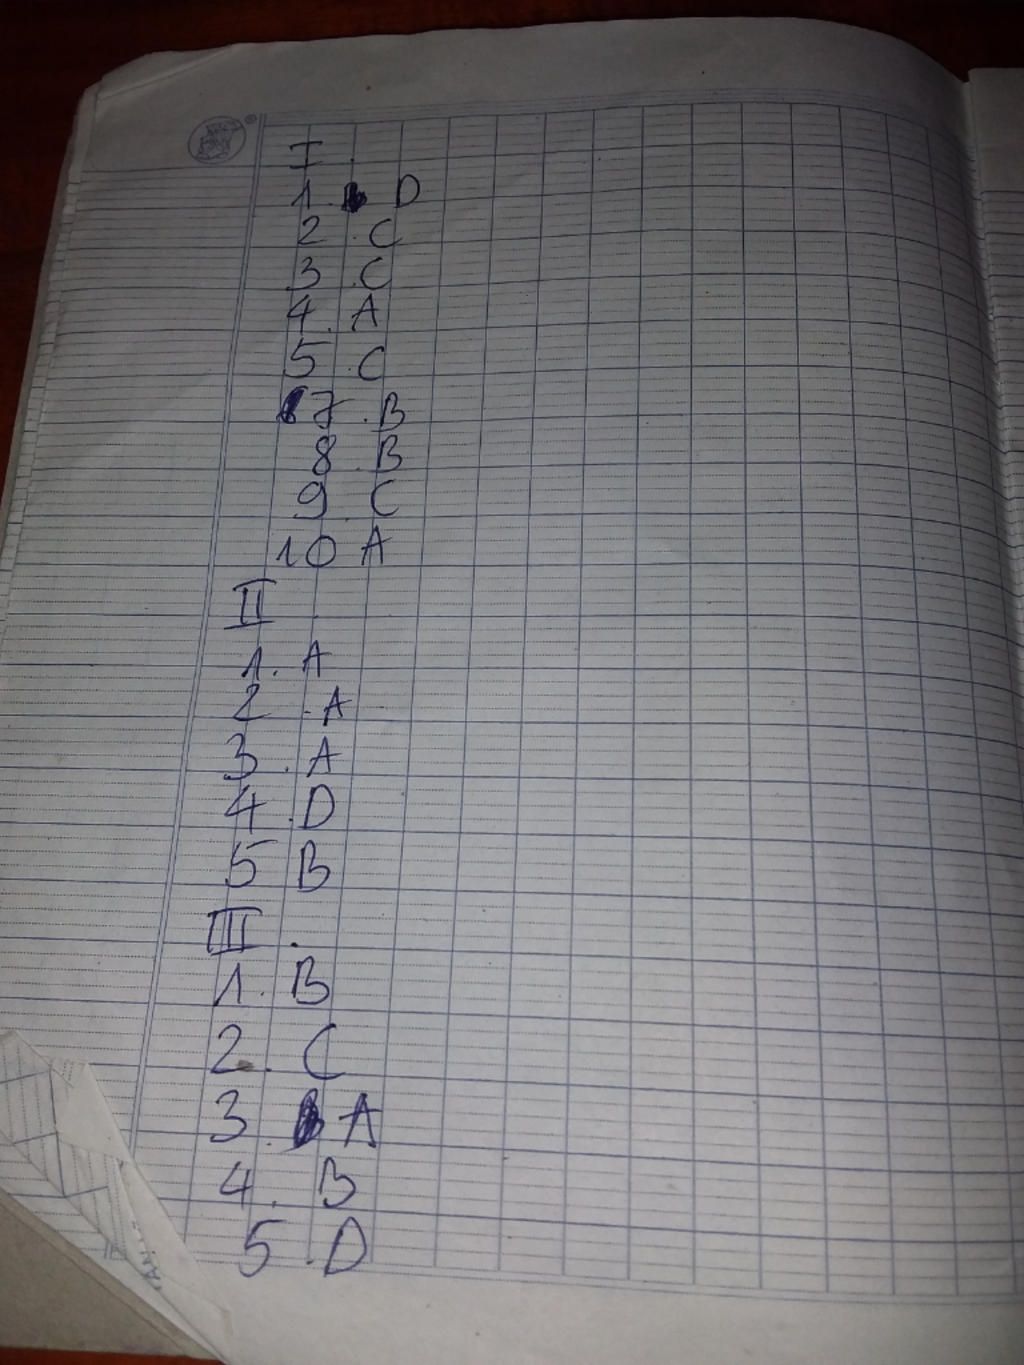 I.
1. D
2. C
3. C
4. A
5. C
7. B
8. B
9. C
10 A
II.
1. A
2. A
3. A
4. D
5 B
III.
1. B
2. C
3. A
4. B
5. D